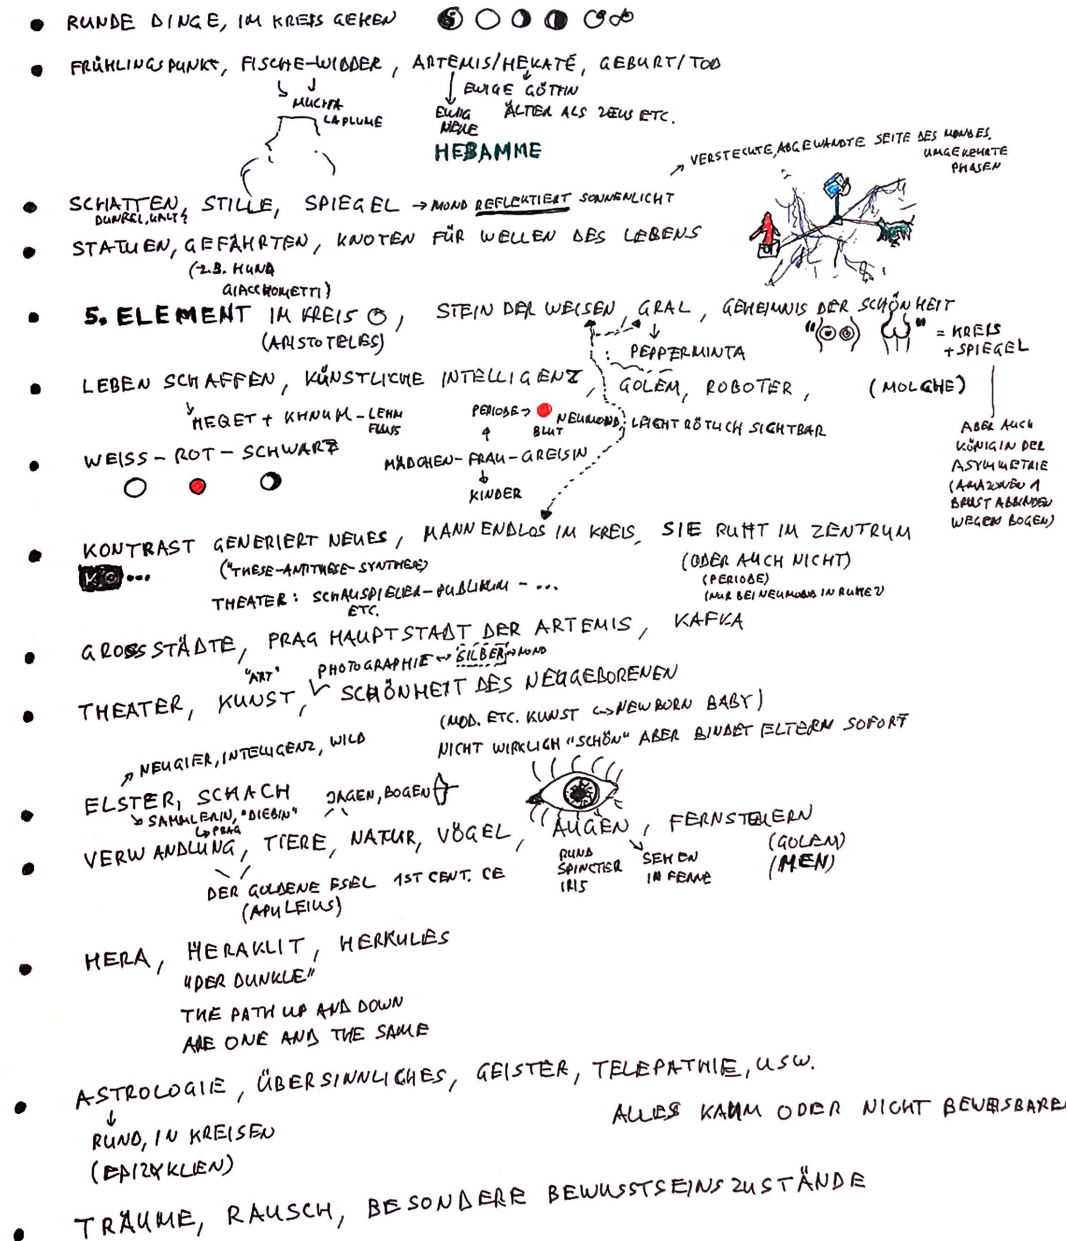 RUNDE DINGE, IM KREIS GEHEN
FRÜHLINGSPUNKT, FISCHE-WIDDER, ARTEMIS/HEKATE, GEBURT/TOD
EWIGE GÖTTIN
MUCHA
LAPLUME
EWIG
NEUE
ÄLTER ALS ZEUS ETC.
HEBAMME
VERSTECKTE, ABGEWANDTE SEITE DES MONDES,
UMGEKEHRTE
PHASEN
SCHATTEN, STILLE, SPIEGEL → MOND REFLEKTIERT SONNENLICHT
DUNKEL, KALT
STATUEN, GEFÄHRTEN, KNOTEN FÜR WELLEN DES LEBENS
(Z.B. HUND
GIACCHOMETTI)
5. ELEMENT IM KREIS, STEIN DER WEISEN, GRAL, GEHEIMNIS DER SCHÖNHEIT
(ARISTOTELES)
= KREIS
+ SPIEGEL
PEPPERMINTA
LEBEN SCHAFFEN, KÜNSTLICHE INTELLIGENZ, GOLEM, ROBOTER, (MOLCHE)
HEQET + KHNUM - LEHM
FLUSS
PERIODE →
BLUT
NEUMOND, LEICHT RÖTLICH SICHTBAR
WEISS - ROT - SCHWARZ
MÄDCHEN - FRAU - GREISIN
KINDER
ABER AUCH
KÖNIGIN DER
ASYMMETRIE
(AMAZONEN 1
BRUST ABBINDEN
WEGEN BOGEN)
KONTRAST GENERIERT NEUES, MANN ENDLOS IM KREIS, SIE RUHT IM ZENTRUM
KO...
("THESE-ANTITHESE-SYNTHESE)
(ODER AUCH NICHT)
(PERIODE)
(NUR BEI NEUMOND IN RUHE?)
THEATER: SCHAUSPIELER - PUBLIKUM - ...
ETC.
GROSSSTÄDTE, PRAG HAUPTSTADT DER ARTEMIS, KAFKA
"ART"
PHOTOGRAPHIE ↔ SILBER → MOND
THEATER, KUNST, SCHÖNHEIT DES NEUGEBORENEN
(MOD. ETC. KUNST ↔ NEW BORN BABY)
NICHT WIRKLICH "SCHÖN" ABER BINDET ELTERN SOFORT
NEUGIER, INTELLIGENZ, WILD
ELSTER, SCHACH
SAMMLERIN, "DIEBIN"
PRAG
JAGEN, BOGEN
VERWANDLUNG, TIERE, NATUR, VÖGEL, AUGEN, FERNSTEUERN
(GOLEM)
(MEN)
RUND
SPINCTER
IRIS
SEHEN
IN FERNE
DER GOLDENE ESEL 1ST CENT. CE
(APULEIUS)
HERA, HERAKLIT, HERKULES
"DER DUNKLE"
THE PATH UP AND DOWN
ARE ONE AND THE SAME
ASTROLOGIE, ÜBERSINNLICHES, GEISTER, TELEPATHIE, USW.
RUND, IN KREISEN
(EPIZYKLEN)
ALLES KAUM ODER NICHT BEWEISBARE
TRÄUME, RAUSCH, BESONDERE BEWUSSTSEINSZUSTÄNDE